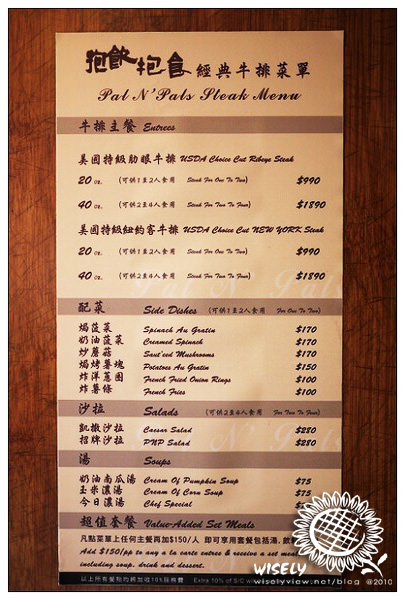 狍飲抱食 經典牛排菜單
Pat N' Pats Steak Menu
牛排主餐 Entrees
美國特級肋眼牛排 USDA Choice Cut Ribeye Steak
20 oz. (可供1至2人食用 Steak For One To Two) $990
40 oz. (可供2至4人食用 Steak For Two To Four) $1890
美國特級紐約客牛排 USDA Choice Cut NEW YORK Steak
20 oz. (可供1至2人食用 Steak For One To Two) $990
40 oz. (可供2至4人食用 Steak For Two To Four) $1890
配菜 Side Dishes (可供1至2人食用 For One To Two)
焗菠菜 Spinach Au Gratin $170
奶油菠菜 Creamed Spinach $170
炒蘑菇 Saut'eed Mushrooms $170
焗烤薯塊 Potatoes Au Gratin $150
炸洋蔥圈 French Fried Onion Rings $100
炸薯條 French Fries $100
沙拉 Salads (可供2至4人食用 For Two To Four)
凱撒沙拉 Caesar Salad $280
招牌沙拉 PNP Salad $280
湯 Soups
奶油南瓜湯 Cream Of Pumpkin Soup $75
玉米濃湯 Cream Of Corn Soup $75
今日濃湯 Chef Special
超值套餐 Value-Added Set Meals
凡點菜單上任何主餐再加$150/人 即可享用套餐包括湯, 飲
Add $150/pp to any a la carte entree & receive a set mea
including soup, drink and dessert.
以上所有餐點均將加收10%服務費 Extra 10% of S/C w
WISELY
wiselyview.net/blog @2010